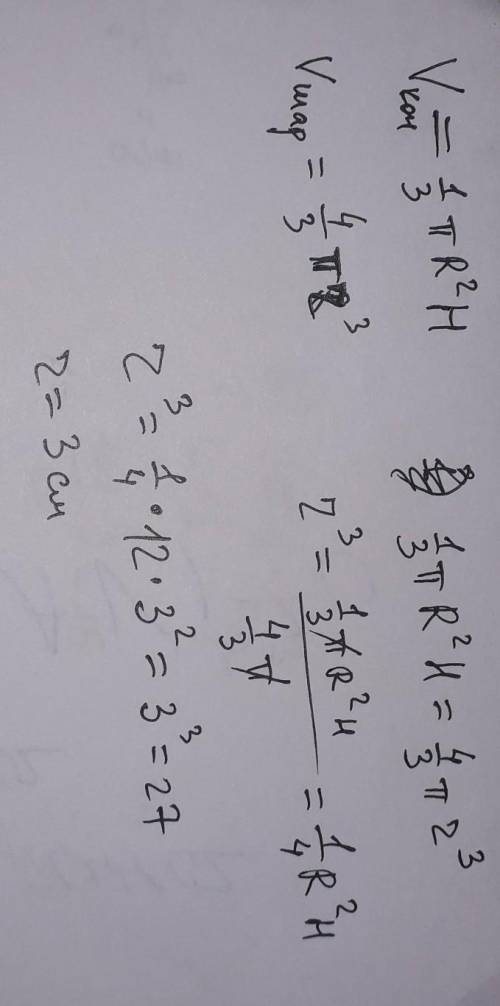 Vкон = 1/3 π R² H
Vшар = 4/3 π r³
1/3 π R² H = 4/3 π r³
r³ = (1/3 π R² H)/(4/3 π) = 1/4 R² H
r³ = 1/4 · 12 · 3² = 3³ = 27
r = 3 см